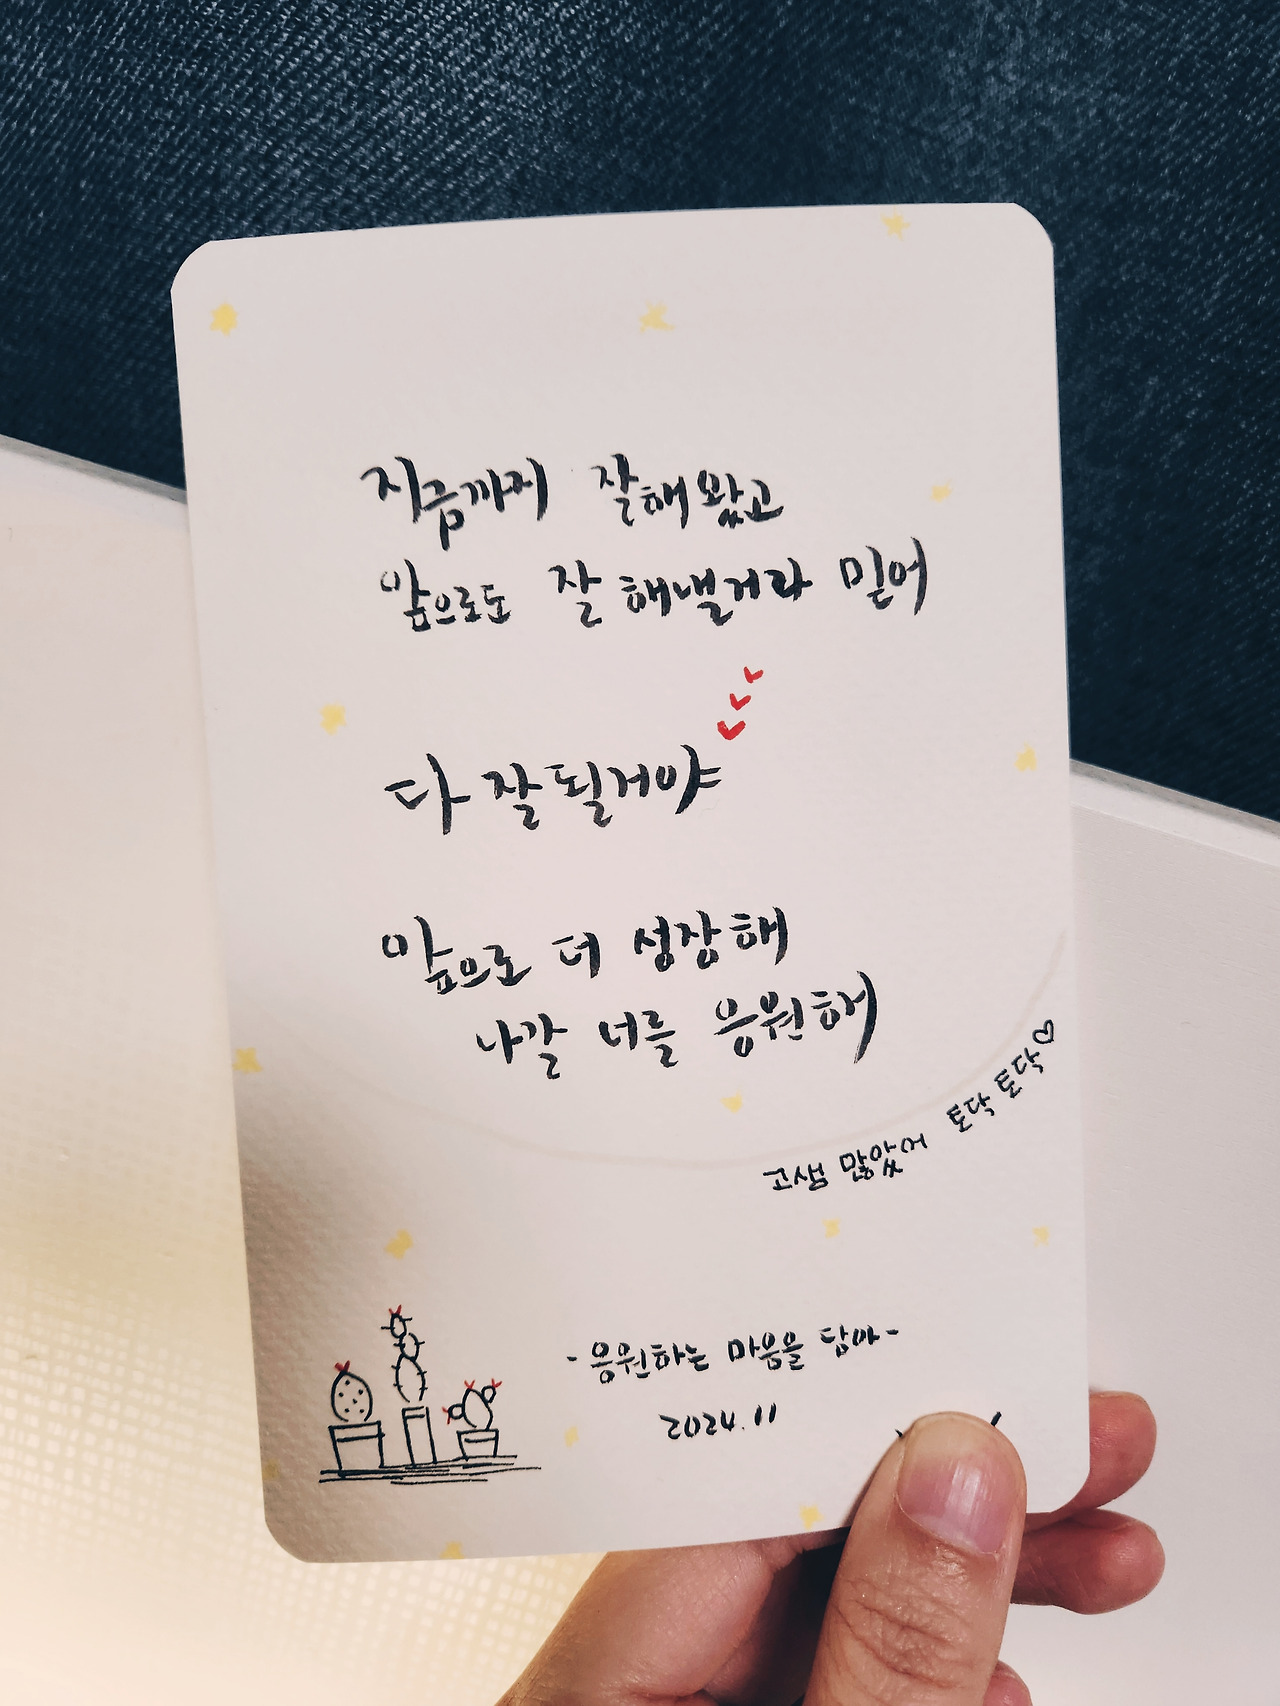 지금까지 잘해왔고
앞으로도 잘 해낼거라 믿어
다 잘 될거야
앞으로 더 성장해
나갈 너를 응원해
고생 많았어 토닥 토닥♡
- 응원하는 마음을 담아 -
2024.11